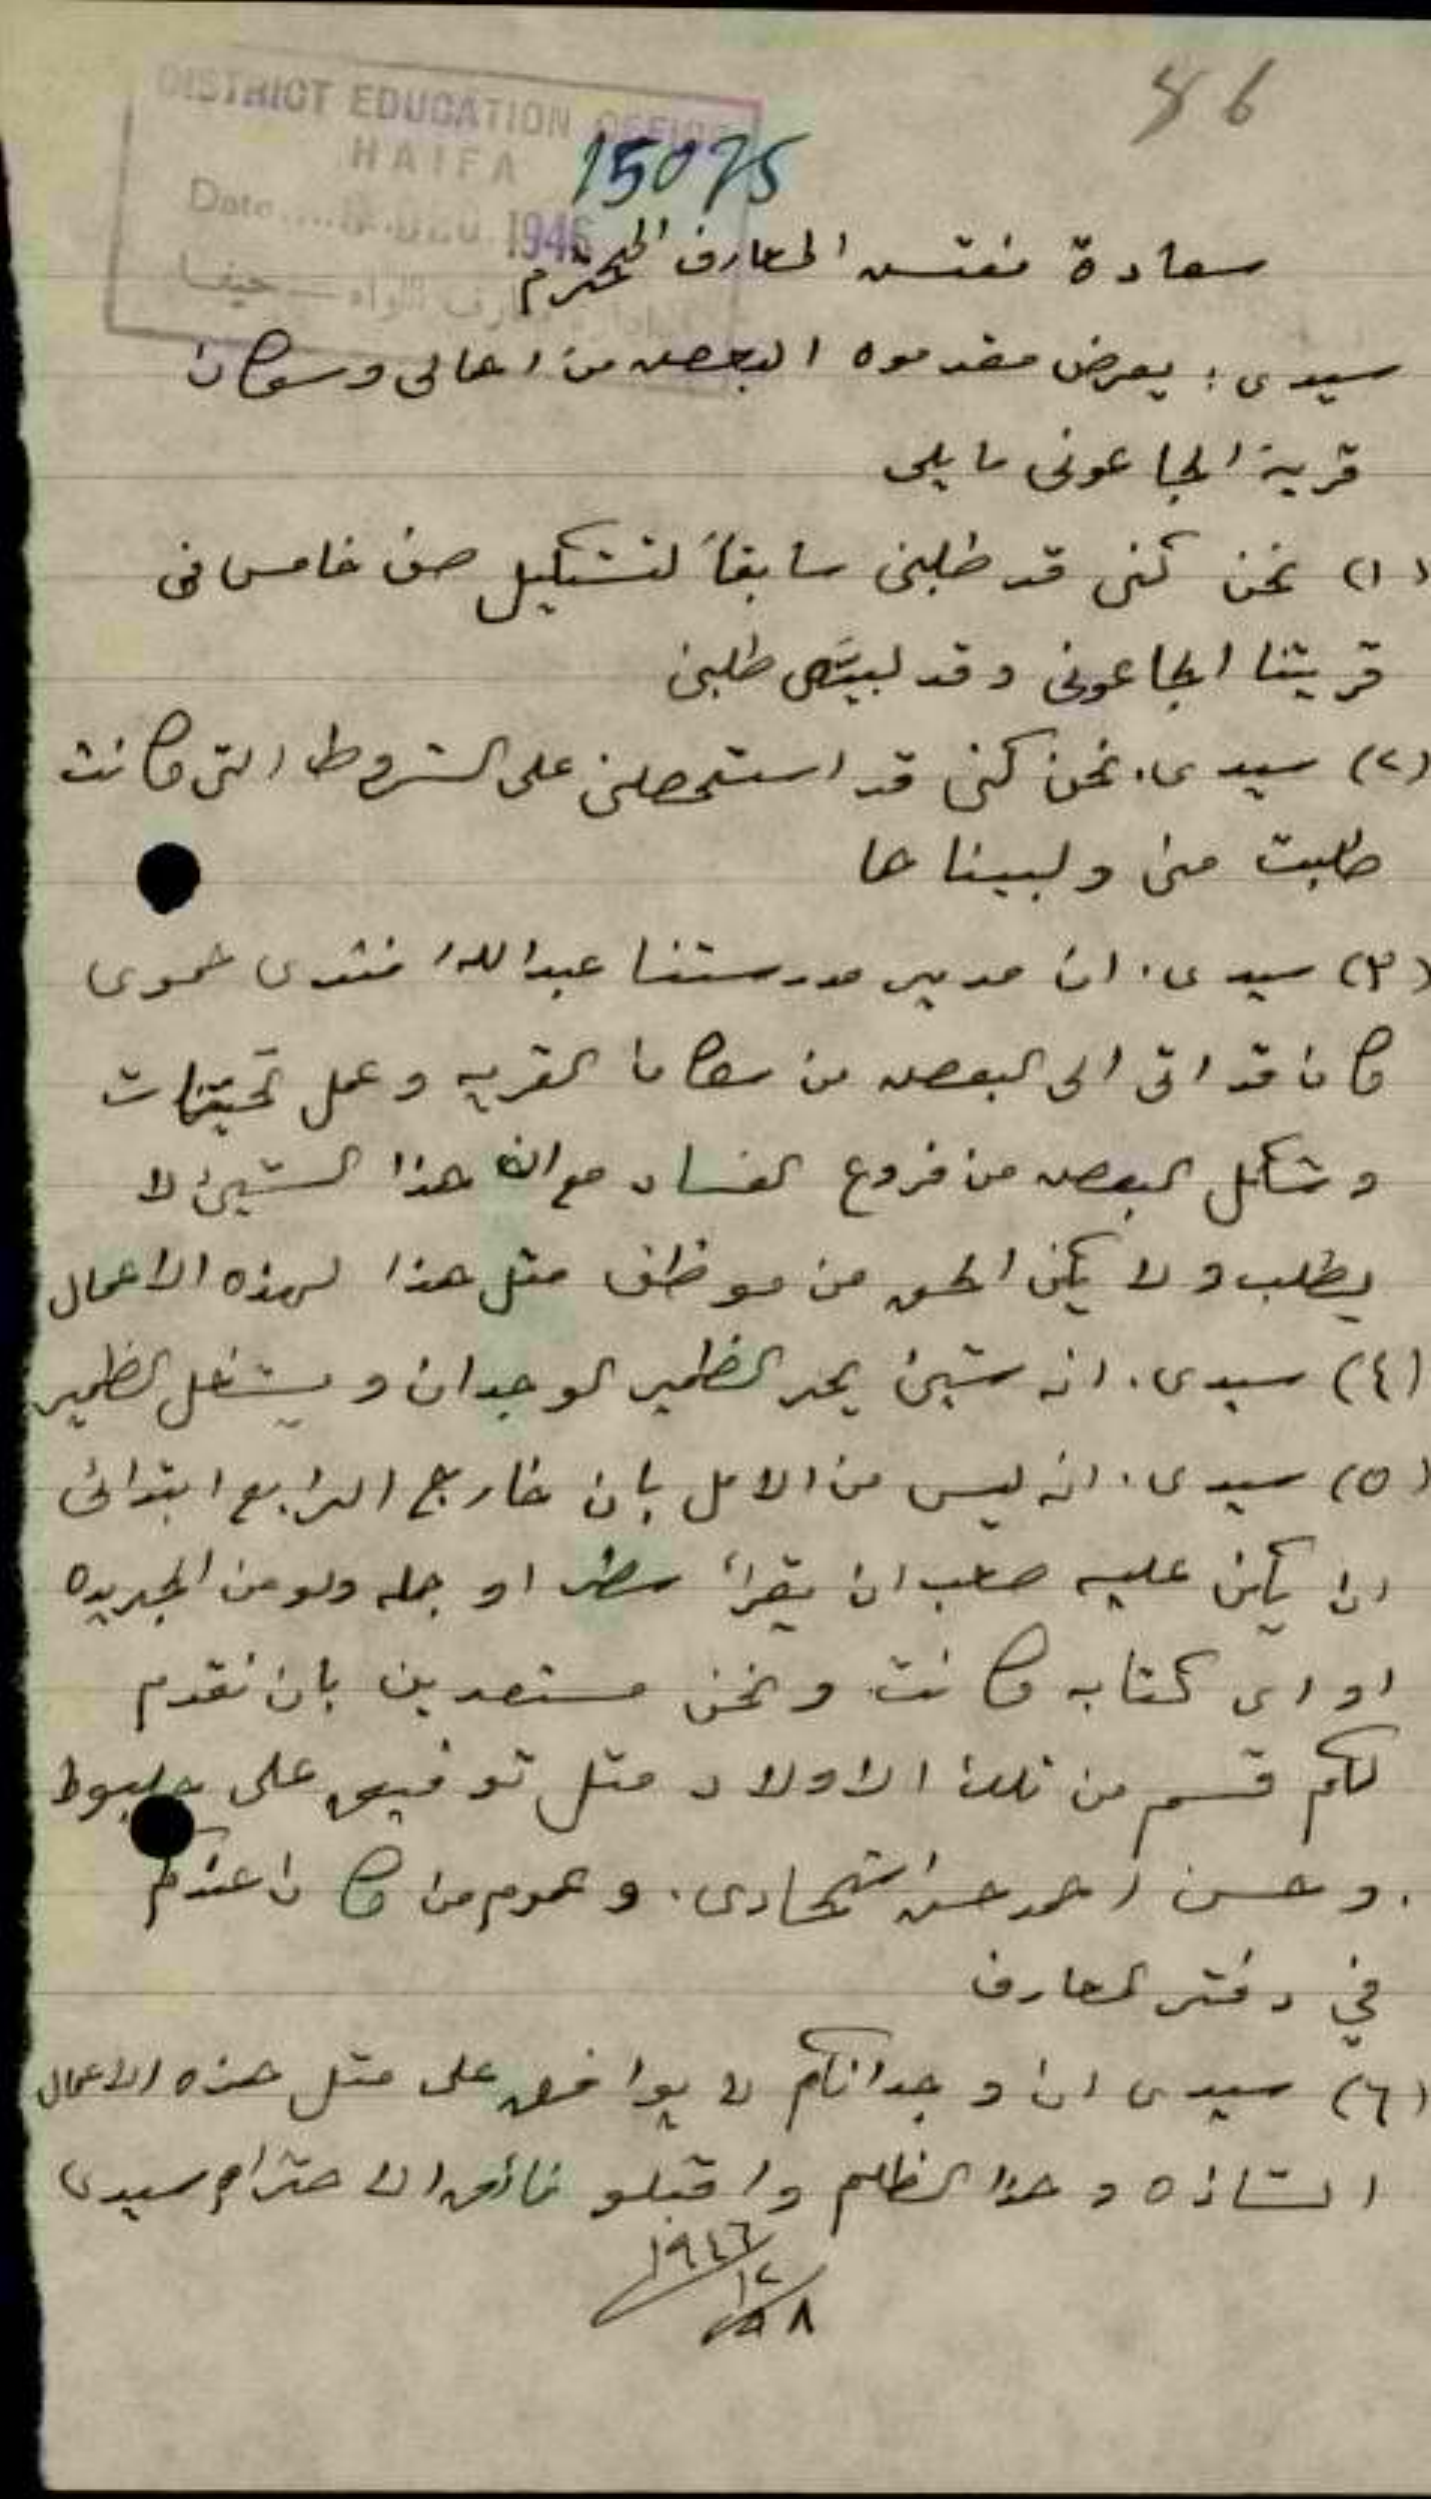 86
DISTRICT EDUCATION OFFICE
HAIFA
15075
Date..... DEC 1946
ادارة معارف اللواء — حيفا
سعادة مفتش المعارف المحترم
سيدى : يعرض مقدموه البعض من اهالى وسكان
قرية الجاعونى ما يلى
(١) نحن كنى قد طلبنى سابقاً لتشكيل صف خامس فى
قريتنا الجاعونى وقد لبيتى طلبنى
(٢) سيدى. نحن كنى قد استحصلنى على الشروط التى كانت
طلبت منى ولبيناها
(٣) سيدى. ان مدير مدرستنا عبدالله افندى حموى
كان قد اتى الى البعض من سكان القريه وعمل
وشكل البعض من فروع الفساد مع ان هذا الشيئ لا
يطلب ولا يكن الحق من موظف مثل هذا لهذه الاعمال
(٤) سيدى. انه شيئ يحر الظمير الوجدان ويشغل الظمير
(٥) سيدى. انه ليس من الامل بان خارج الرابع ابتدائى
ان يكن عليه صعب ان يقرأ سطر او جمله ولو من الجريده
او اى كتابه كانت ونحن مستعدين بان نقدم
لكم قسم من تلك الاولاد مثل توفيق على
. وحسن احمد حسن . وعموم من كان عندكم
في دفتر المعارف
(٦) سيدى ان وجدانكم لا يوافق على مثل هذه الاعمال
الشاذه وهذا الظلم واقبلو فائق الاحترام سيدى
١٩٤٦
١٢
٨